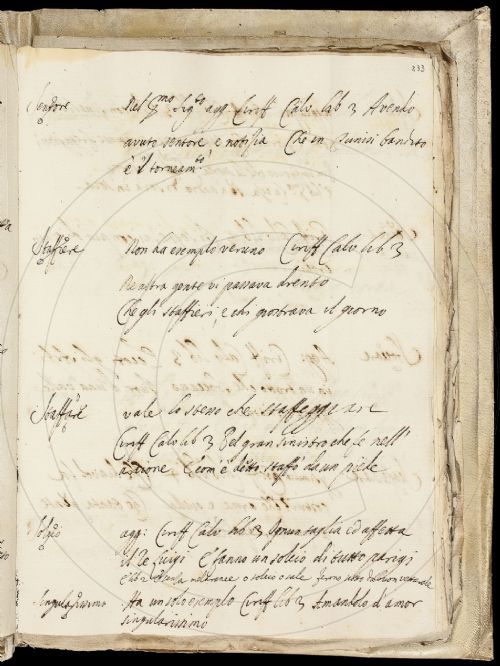 233
Sentore Nel 3mo sigto agg Ciriff Calv lib 3 Avendo
avuto sentore e notizia Che in Tunisi bandito
è il torneamto
Staffiere Non ha esempio veruno Ciriff Calv lib 3
gente vi passava drento
Che gli staffieri, e chi giostrava il giorno
Staffare vale lo stesso che staffeggiare
Ciriff Calv lib 3 Pel gran sinistro che le nell'
arcione E com'è ditto staffò da un piede
agg: Ciriff Calv lib 3 Ognun taglia ed affetta
il Re Luigi E fanno un di tutto parigi
Singularissimo Ha un solo esempio Ciriff lib 3 Amandola d'amor
singularissimo